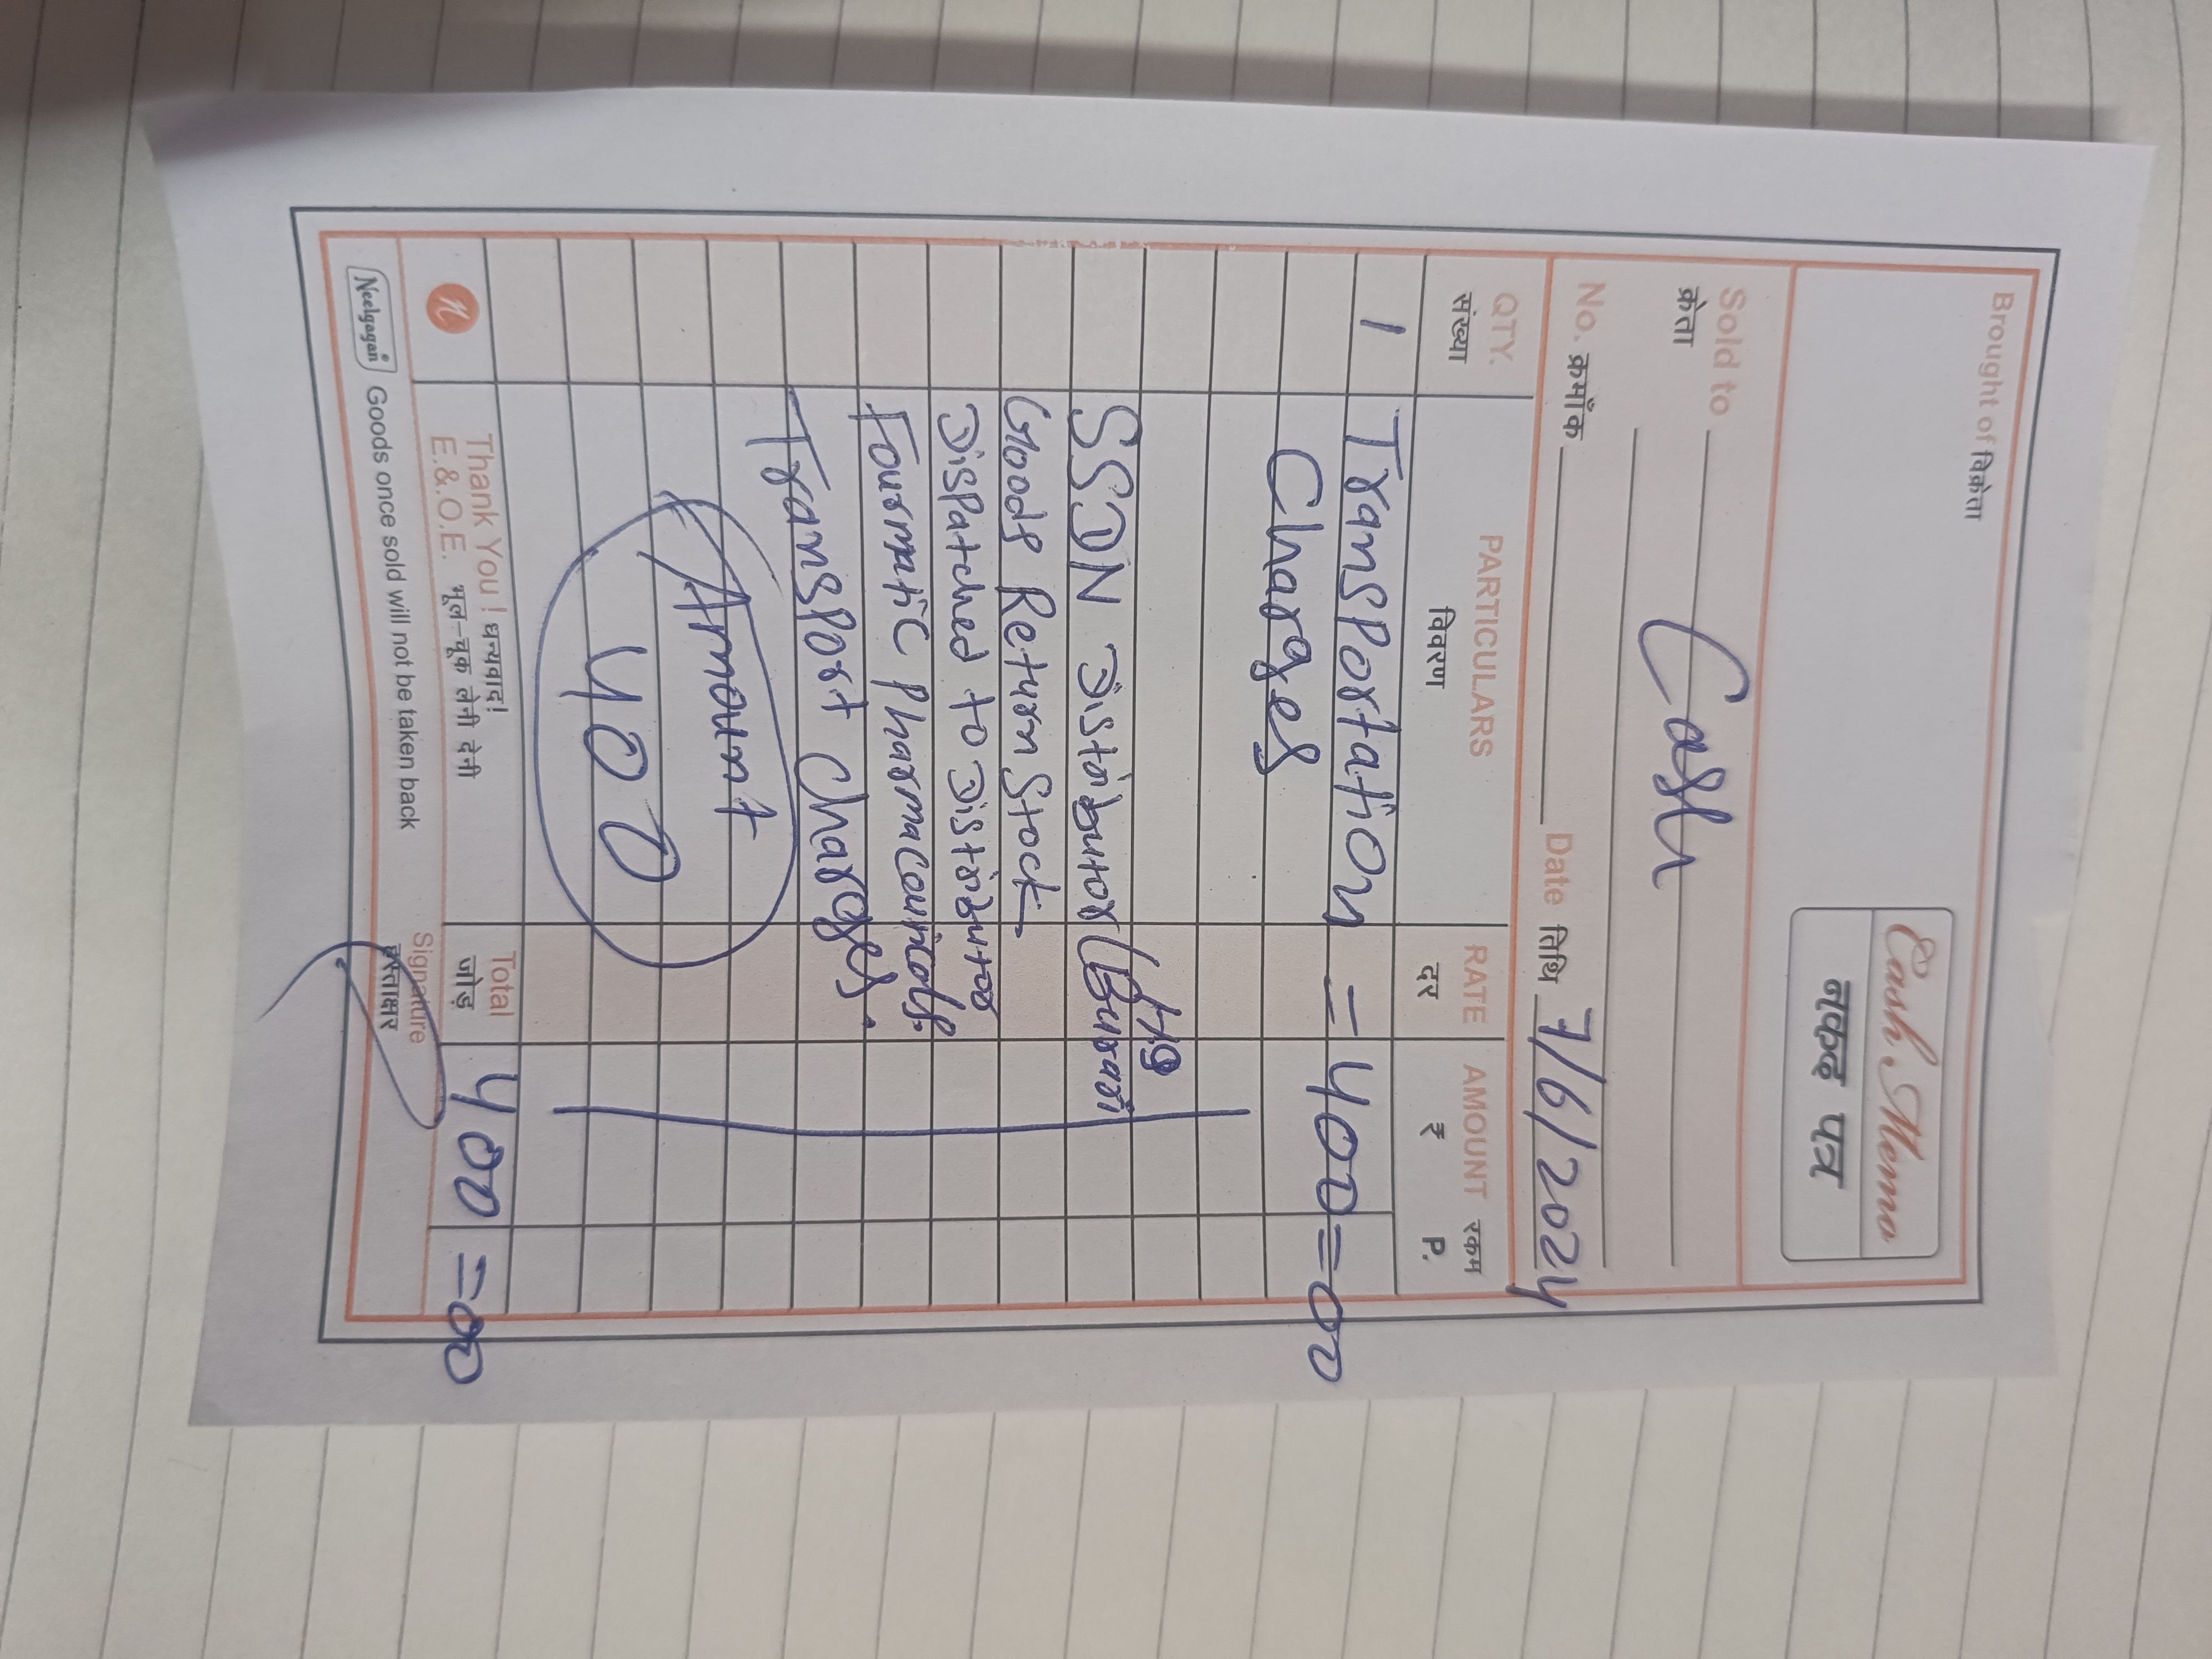 Brought of विक्रेता
Cash Memo
नकद पत्र
Sold to Cash
क्रेता
No. क्रमाँक Date तिथि 7/6/2024
QTY. PARTICULARS RATE AMOUNT रकम
संख्या विवरण दर ₹ P.
1 Transportation - 400=00
Charges
SSDN Distributor (Burari
Goods Return Stock
Dispatched to Distributor
Foursmatic Pharmacouricals.
Transport Charges.
Amount
400
Thank You! धन्यवाद! Total 400=00
E.&.O.E. भूल-चूक लेनी देनी जोड़
Signature
हस्ताक्षर
Neelgagan Goods once sold will not be taken back